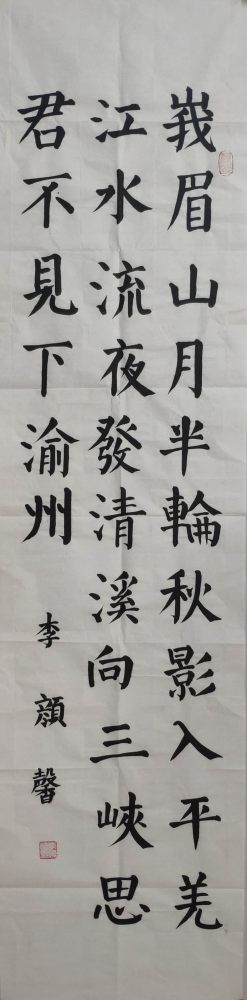 峩眉山月半輪秋影入平羌
江水流夜發清溪向三峽思
君不見下渝州
李顏馨